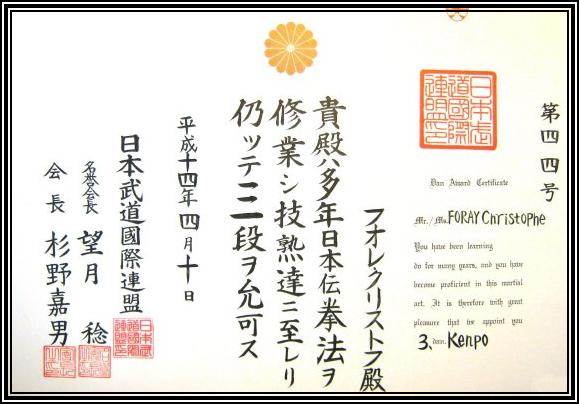 第四四号
日本武
道國際
連盟印
Dan Award Certificate
Mr./Ms. FORAY Christophe
You have been learning
do for many years, and you have
become proficient in this martial
art. It is therefore with great
pleasure that we appoint you
3. dan. Kenpo
フオレ,クリストフ殿
貴殿ハ多年日本伝拳法ヲ
修業シ技熟達ニ至レリ
仍ッテ三段ヲ允可ス
平成十四年四月十日
日本武道國際連盟
日本武
道國際
連盟印
名誉会長 望月 稔
会長 杉野嘉男